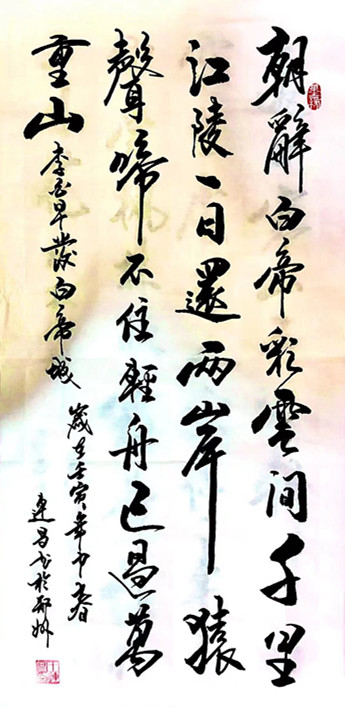 朝辭白帝彩雲間千里
江陵一日還兩岸猿
聲啼不住輕舟已過萬
重山
李白早發白帝城
歲在壬寅年中春
連昌书於州